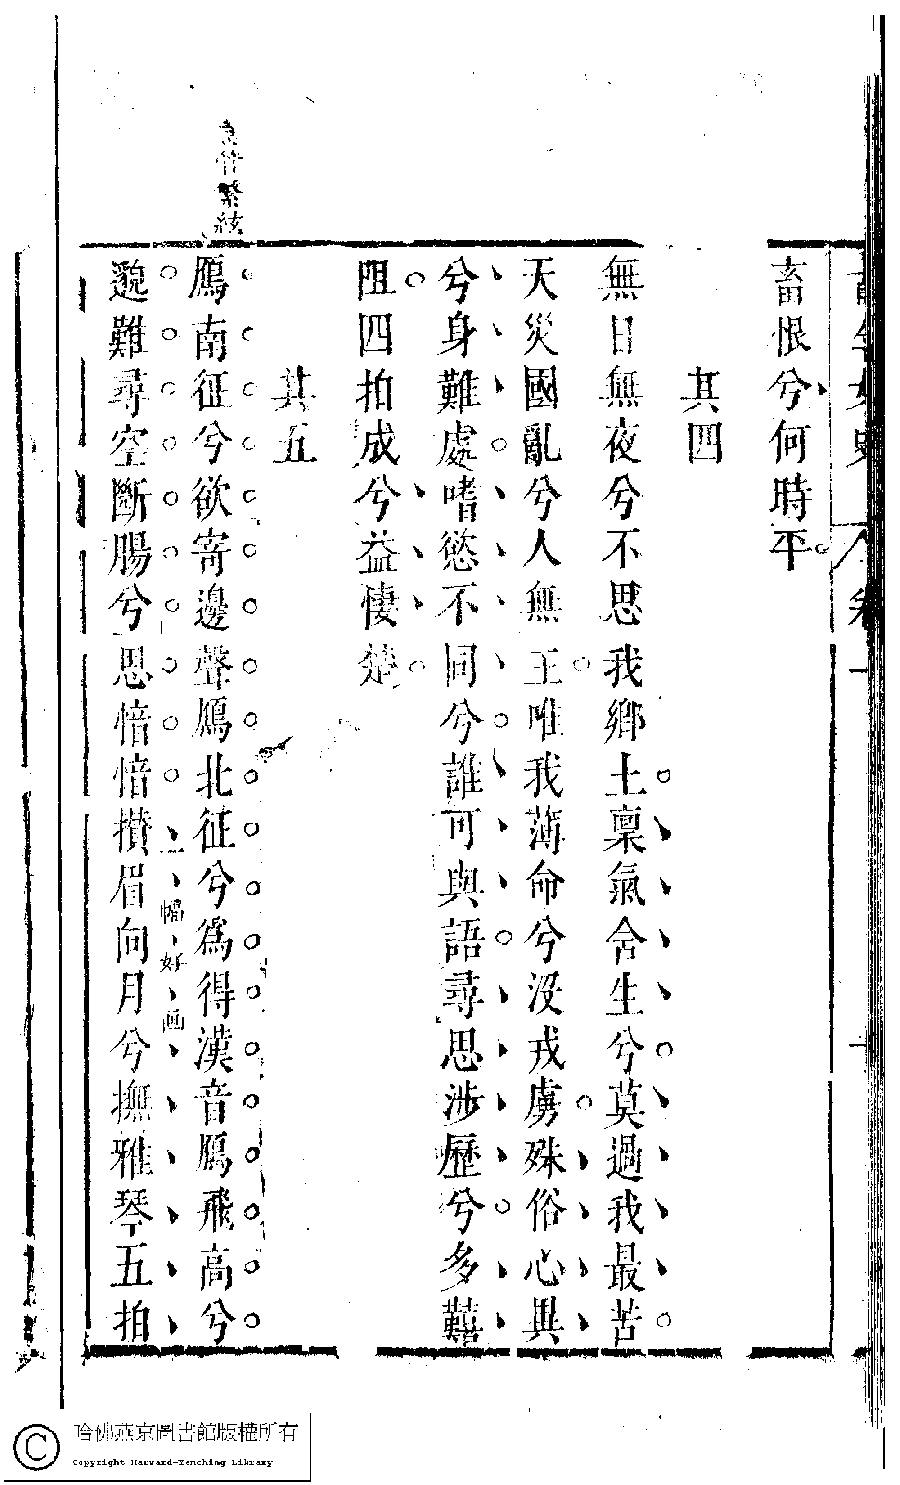 畜恨兮何時平
其四
無日無夜兮不思我鄉土稟氣含生兮莫過我最苦
天災國亂兮人無主唯我薄命兮沒戎虜殊俗心異
兮身難處嗜慾不同兮誰可與語尋思涉歷兮多難
阻四拍成兮益悽楚
其五
繁絃
鴈南征兮欲寄邊聲鴈北征兮爲得漢音鴈飛高兮
一幅好画
邈難尋空斷腸兮思愔愔攢眉向月兮撫雅琴五拍
哈佛燕京圖書館版權所有
Copyright Harvard-Yenching Library